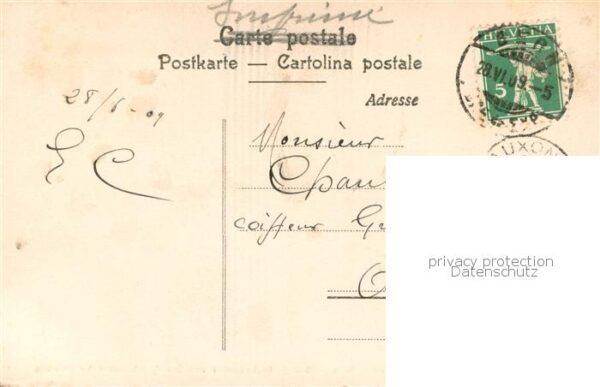 Imprimé
Carte postale
Postkarte — Cartolina postale
HELVETIA
5
28.VI.09.–5
Adresse
28/6-09
E C
Monsieur
coiffeur
AUXON
privacy protection
Datenschutz